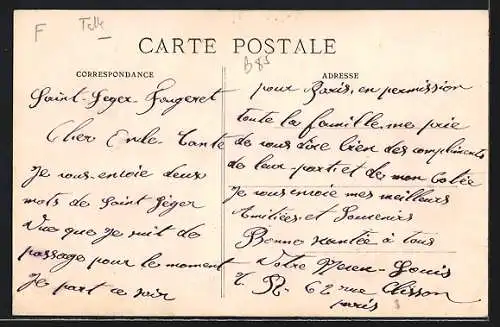 F
CARTE POSTALE
B85
CORRESPONDANCE
Saint-Leger-Fougeret
Cher Oncle-Tante
Je vous envoie deux
mots de Saint Léger
Vue que je suit de
passage pour le moment
Je part ce soir
ADRESSE
pour Paris, en permission
toute la famille me prie
de vous dire bien des compliments
de leur part et de mon Cotée
Je vous envoie mes meilleurs
Amitiées et Souvenirs
Bonne santée à tous
Votre Neveu-Louis
62 rue Clisson
paris